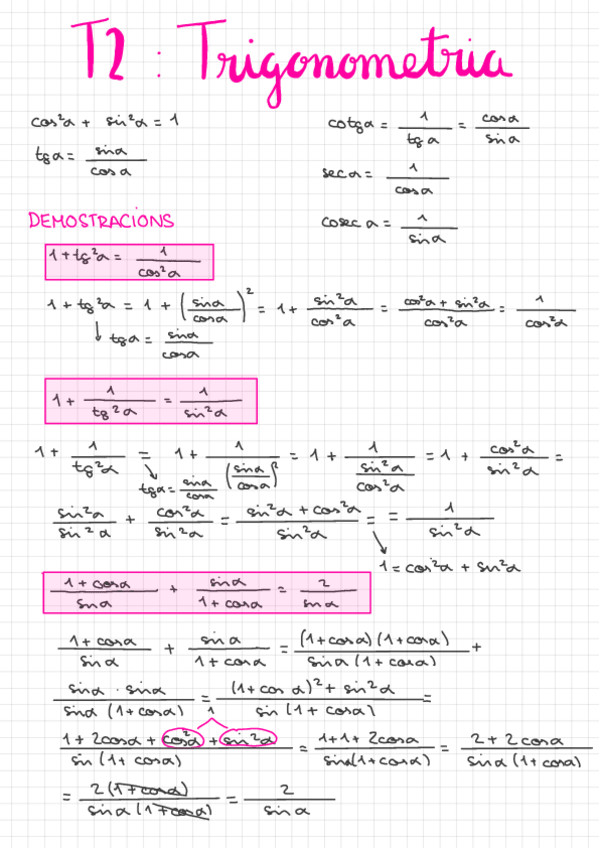 T2 : Trigonometria
cos²α + sin²α = 1
tgα = sinα / cosα
cotgα = 1 / tgα = cosα / sinα
secα = 1 / cosα
cosecα = 1 / sinα
DEMOSTRACIONS
1 + tg²α = 1 / cos²α
1 + tg²α = 1 + (sinα / cosα)² = 1 + sin²α / cos²α = (cos²α + sin²α) / cos²α = 1 / cos²α
↳ tgα = sinα / cosα
1 + 1 / tg²α = 1 / sin²α
1 + 1 / tg²α = 1 + 1 / (sinα / cosα)² = 1 + 1 / (sin²α / cos²α) = 1 + cos²α / sin²α =
tgα = sinα / cosα
sin²α / sin²α + cos²α / sin²α = (sin²α + cos²α) / sin²α = = 1 / sin²α
1 = cos²α + sin²α
(1 + cosα) / sinα + sinα / (1 + cosα) = 2 / sinα
(1 + cosα) / sinα + sinα / (1 + cosα) = (1 + cosα)(1 + cosα) / sinα (1 + cosα) +
sinα · sinα / sinα (1 + cosα) = ((1 + cos α)² + sin²α) / sin (1 + cosα) =
1
(1 + 2cosα + cos²α + sin²α) / sin (1 + cosα) = (1 + 1 + 2cosα) / sinα(1 + cosα) = (2 + 2cosα) / sinα (1 + cosα)
= 2 (1 + cosα) / sinα (1 + cosα) = 2 / sinα